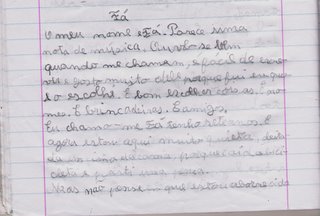 Fá
O meu nome é Fá. Parece uma
nota de música. Ouve-se bem
quando me chamam, é fácil de escre-
ver e gosto muito dele porque fui eu que
o escolhi. É bom escolher coisas. É no-
mes. E brincadeiras. E amigos.
Eu chamo-me Fá tenho sete anos. E
agora estou aqui muito quieta, deita-
da na cama porque caí a bici-
cleta e parti uma perna.
Mas não pensem que estou aborrecida